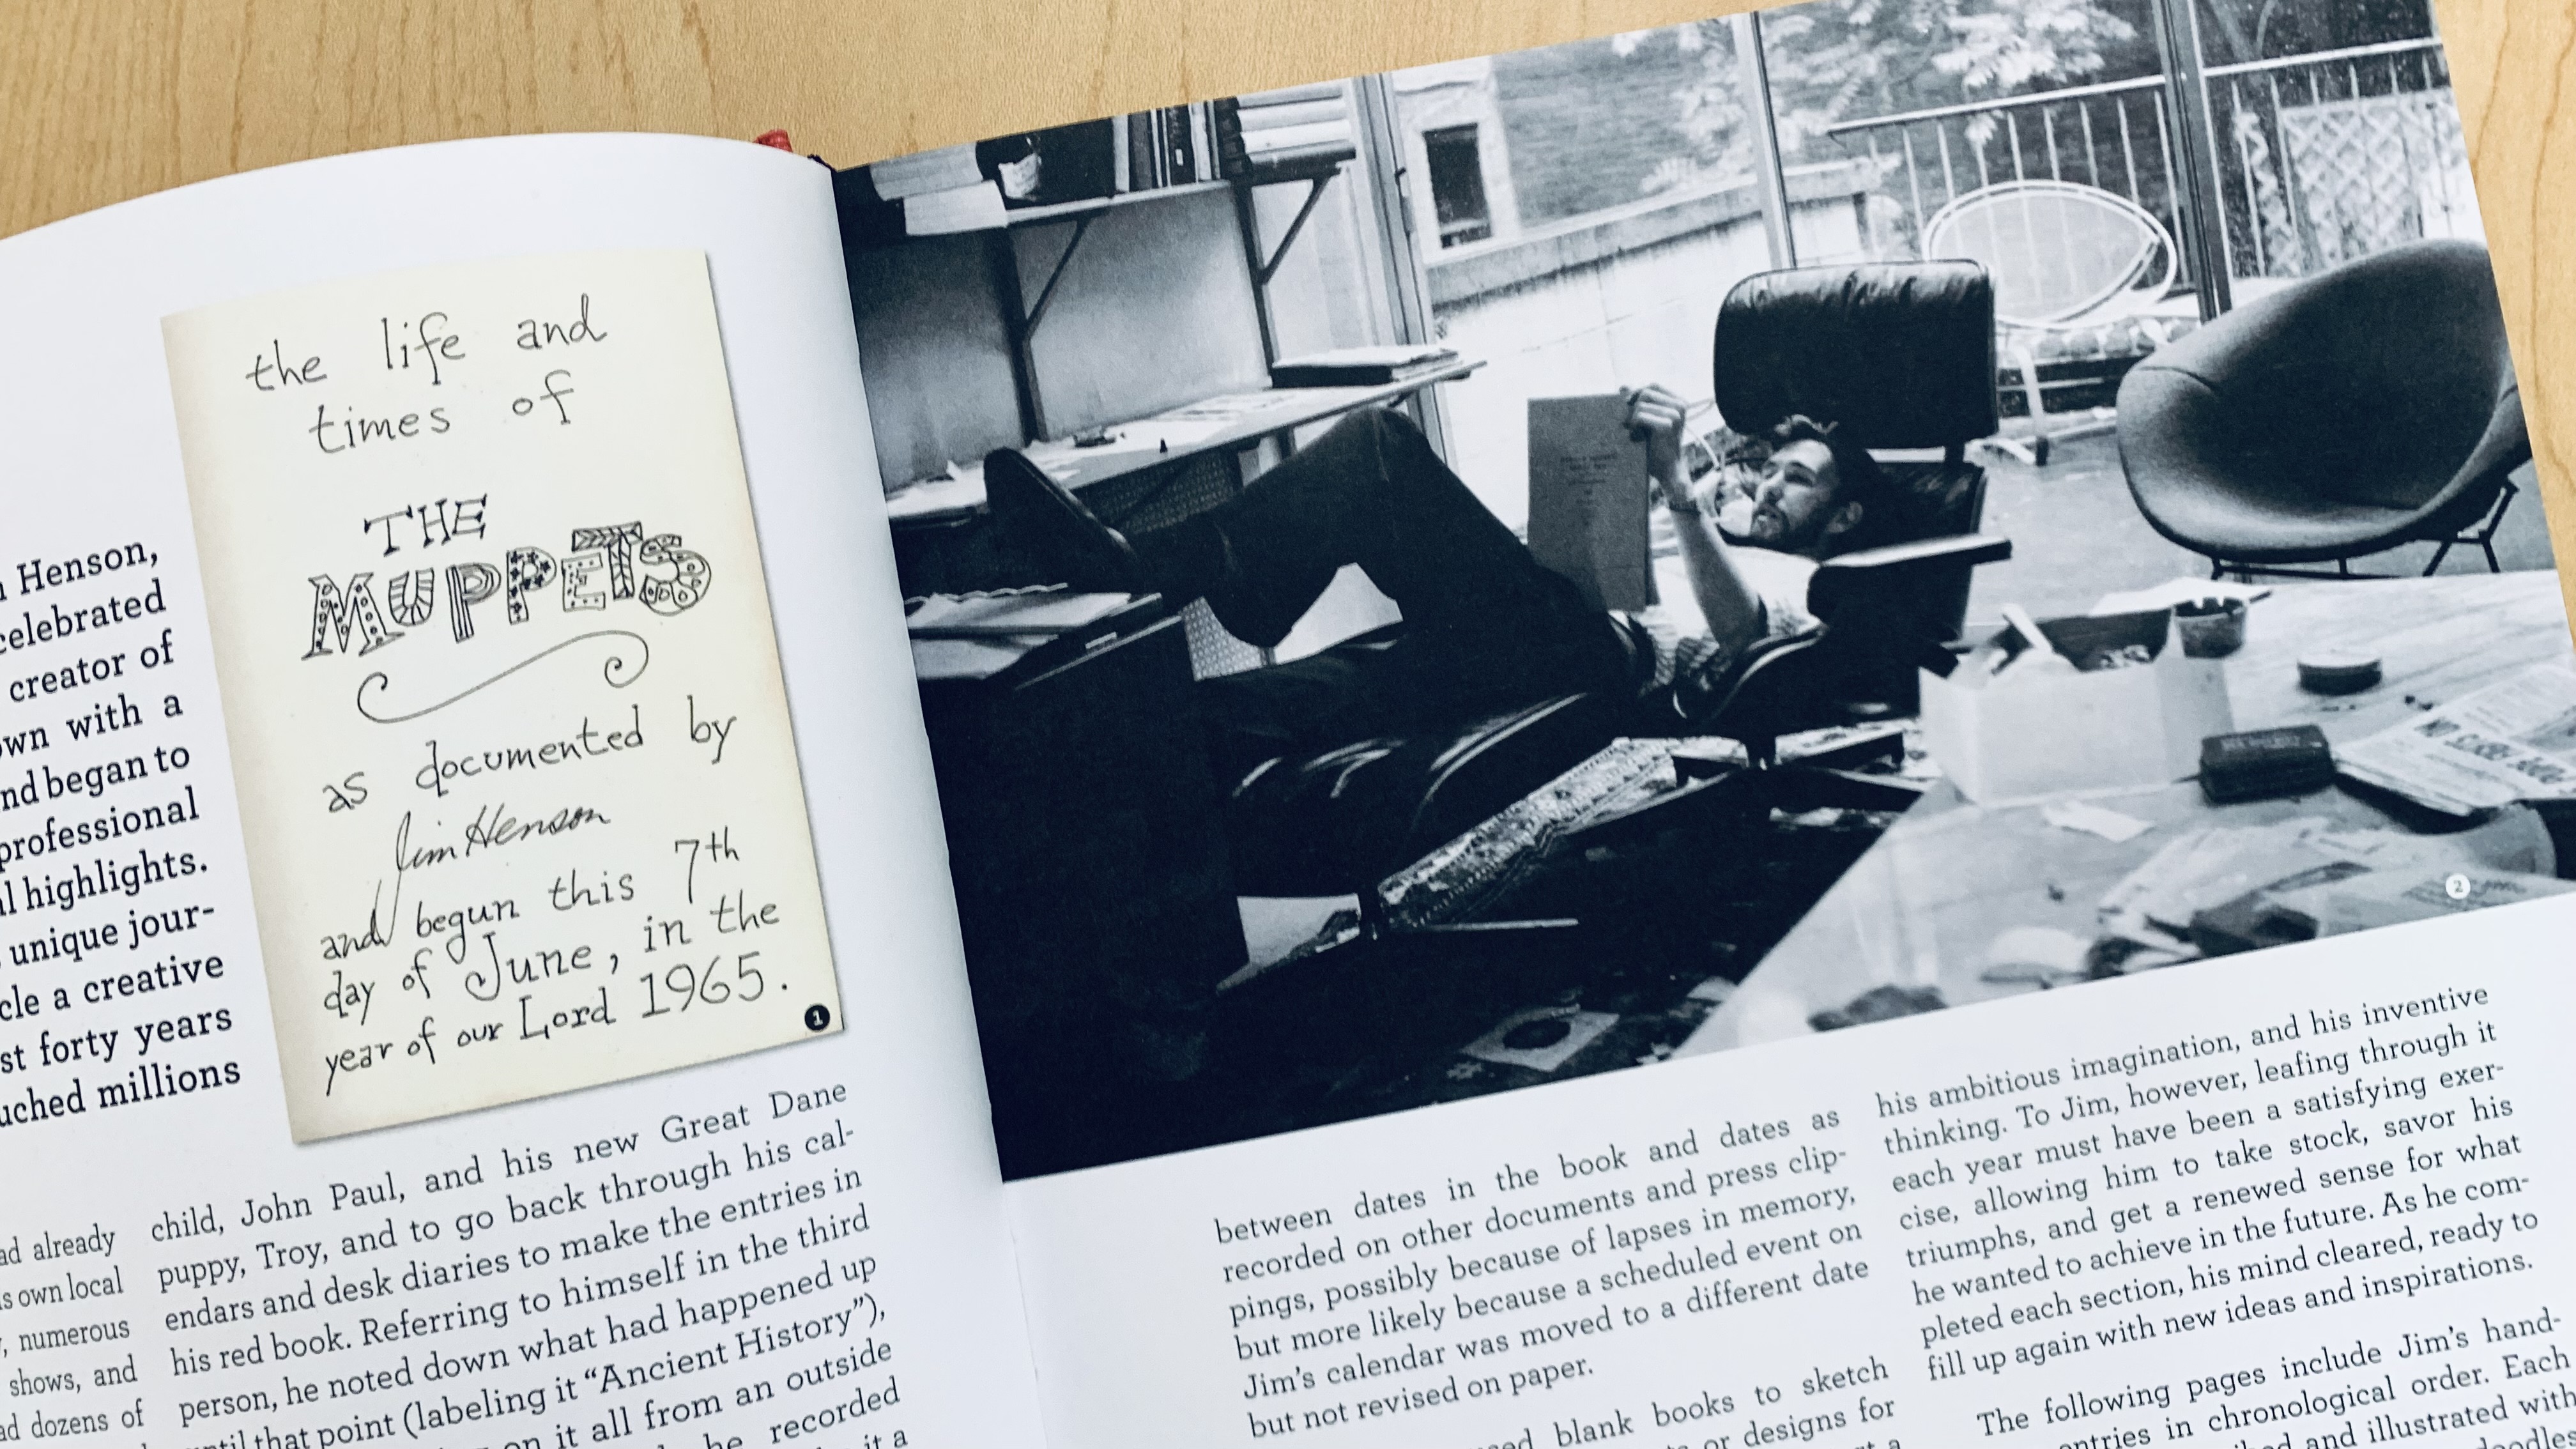 Henson,
celebrated
creator of
with a
began to
professional
highlights.
unique jour-
a creative
forty years
millions
the life and
times of
THE
MUPPETS
as documented by
Jim Henson
and begun this 7th
day of June, in the
year of our Lord 1965.
1
already
own local
numerous
shows, and
dozens of
child, John Paul, and his new Great Dane
puppy, Troy, and to go back through his cal-
endars and desk diaries to make the entries in
his red book. Referring to himself in the third
person, he noted down what had happened up
that point (labeling it “Ancient History”),
on it all from an outside
he recorded
it a
2
between dates in the book and dates as
recorded on other documents and press clip-
pings, possibly because of lapses in memory,
but more likely because a scheduled event on
Jim’s calendar was moved to a different date
but not revised on paper.
blank books to sketch
or designs for
his ambitious imagination, and his inventive
thinking. To Jim, however, leafing through it
each year must have been a satisfying exer-
cise, allowing him to take stock, savor his
triumphs, and get a renewed sense for what
he wanted to achieve in the future. As he com-
pleted each section, his mind cleared, ready to
fill up again with new ideas and inspirations.
The following pages include Jim’s hand-
entries in chronological order. Each
and illustrated with
doodles